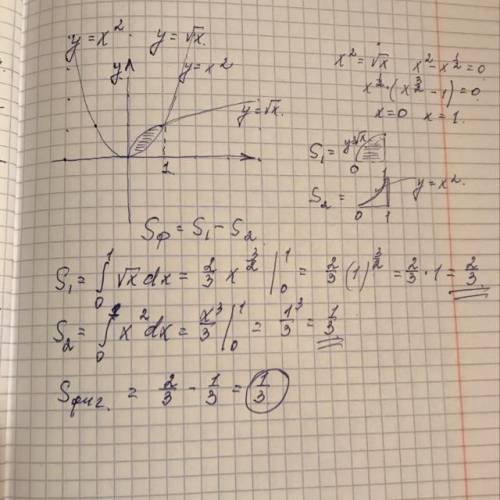 y = x² y = √x
x² = √x x² - x^½ = 0
x^½ · (x^{3/2} - 1) = 0
x = 0 x = 1.
y
y = x²
y = √x
1
S₁ = y=√x 0
S₂ = 1 0 1 y = x².
Sφ = S₁ - S₂
S₁ = ∫₀¹ √x dx = 2/3 x^{3/2} |₀¹ = 2/3 (1)^{3/2} = 2/3 · 1 = 2/3
S₂ = ∫₀¹ x² dx = x³/3 |₀¹ = 1³/3 = 1/3
Sфиг. = 2/3 - 1/3 = 1/3